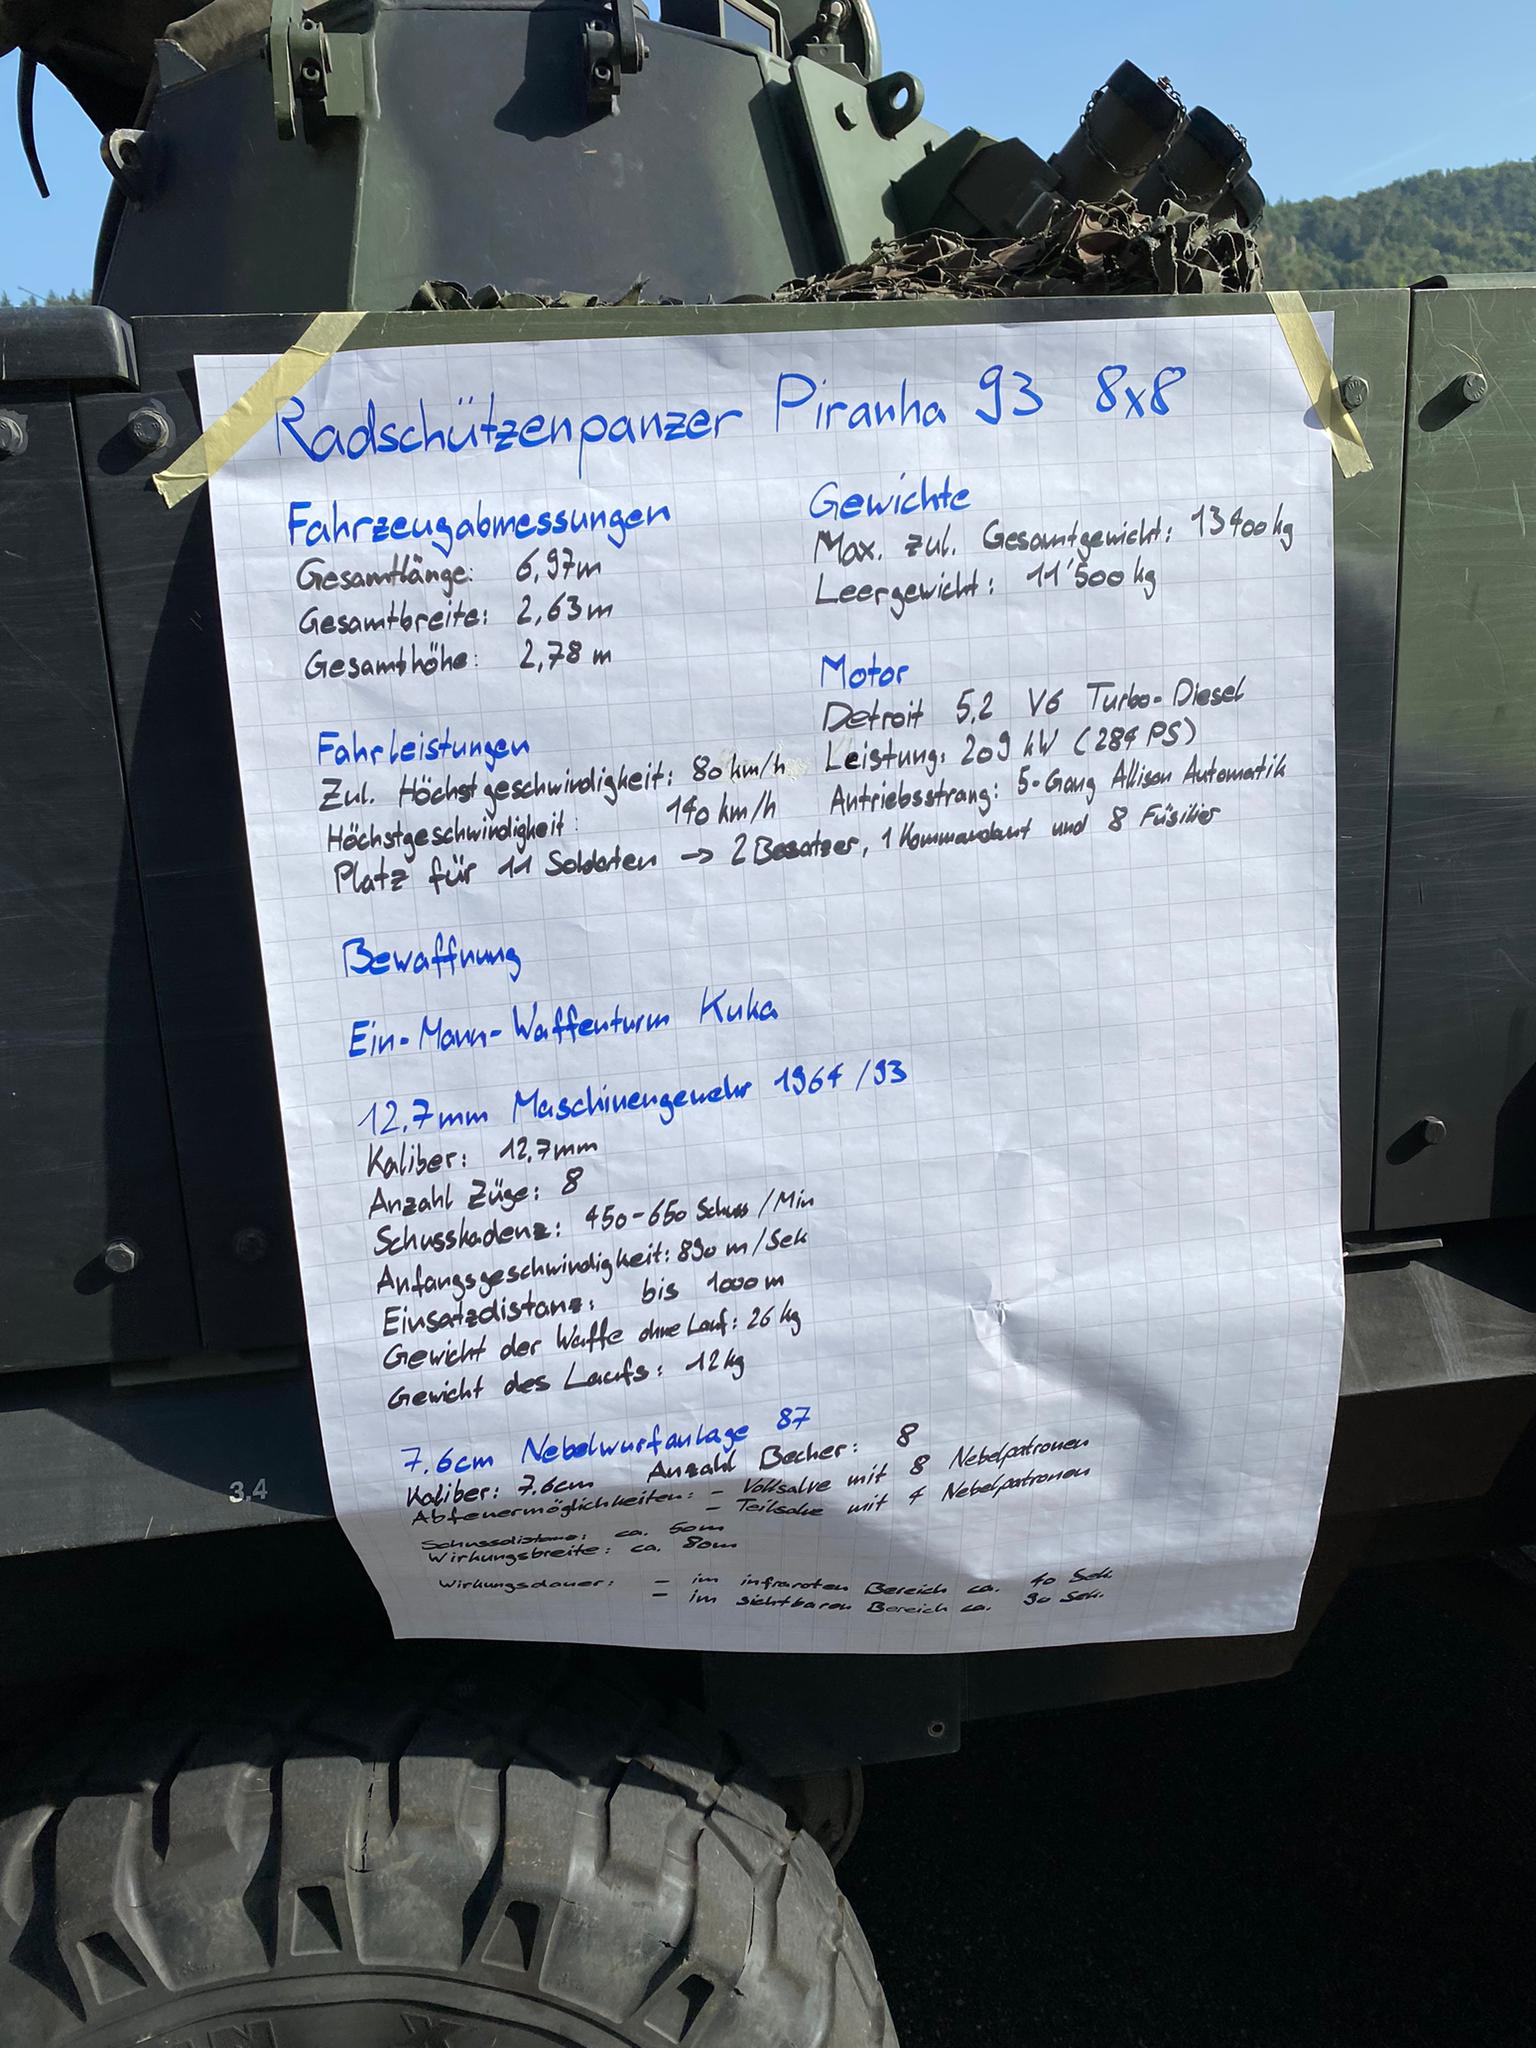 Radschützenpanzer Piranha 93 8x8
Fahrzeugabmessungen
Gesamtlänge: 6,97m
Gesamtbreite: 2,63m
Gesamthöhe: 2,78m
Gewichte
Max. zul. Gesamtgewicht: 13400kg
Leergewicht: 11'500kg
Motor
Detroit 5,2 V6 Turbo-Diesel
Leistung: 209 kW (284 PS)
Antriebsstrang: 5-Gang Allison Automatik
Fahrleistungen
Zul. Höchstgeschwindigkeit: 80 km/h
Höchstgeschwindigkeit: 140 km/h
Platz für 11 Soldaten → 2 Besatzer, 1 Kommandant und 8 Füsilier
Bewaffnung
Ein-Mann-Waffenturm Kuka
12,7mm Maschinengewehr 1964/93
Kaliber: 12,7mm
Anzahl Züge: 8
Schusskadenz: 450-650 Schuss/Min
Anfangsgeschwindigkeit: 890 m/Sek
Einsatzdistanz: bis 1000m
Gewicht der Waffe ohne Lauf: 26 kg
Gewicht des Laufs: 12kg
7.6cm Nebelwurfanlage 87
Kaliber: 7.6cm Anzahl Becher: 8
Abfeuermöglichkeiten: - Vollsalve mit 8 Nebelpatronen
- Teilsalve mit 4 Nebelpatronen
Schussdistanz: ca. 50m
Wirkungsbreite: ca. 80m
Wirkungsdauer: - im infraroten Bereich ca. 40 Sek.
- im sichtbaren Bereich ca. 90 Sek.
3,4